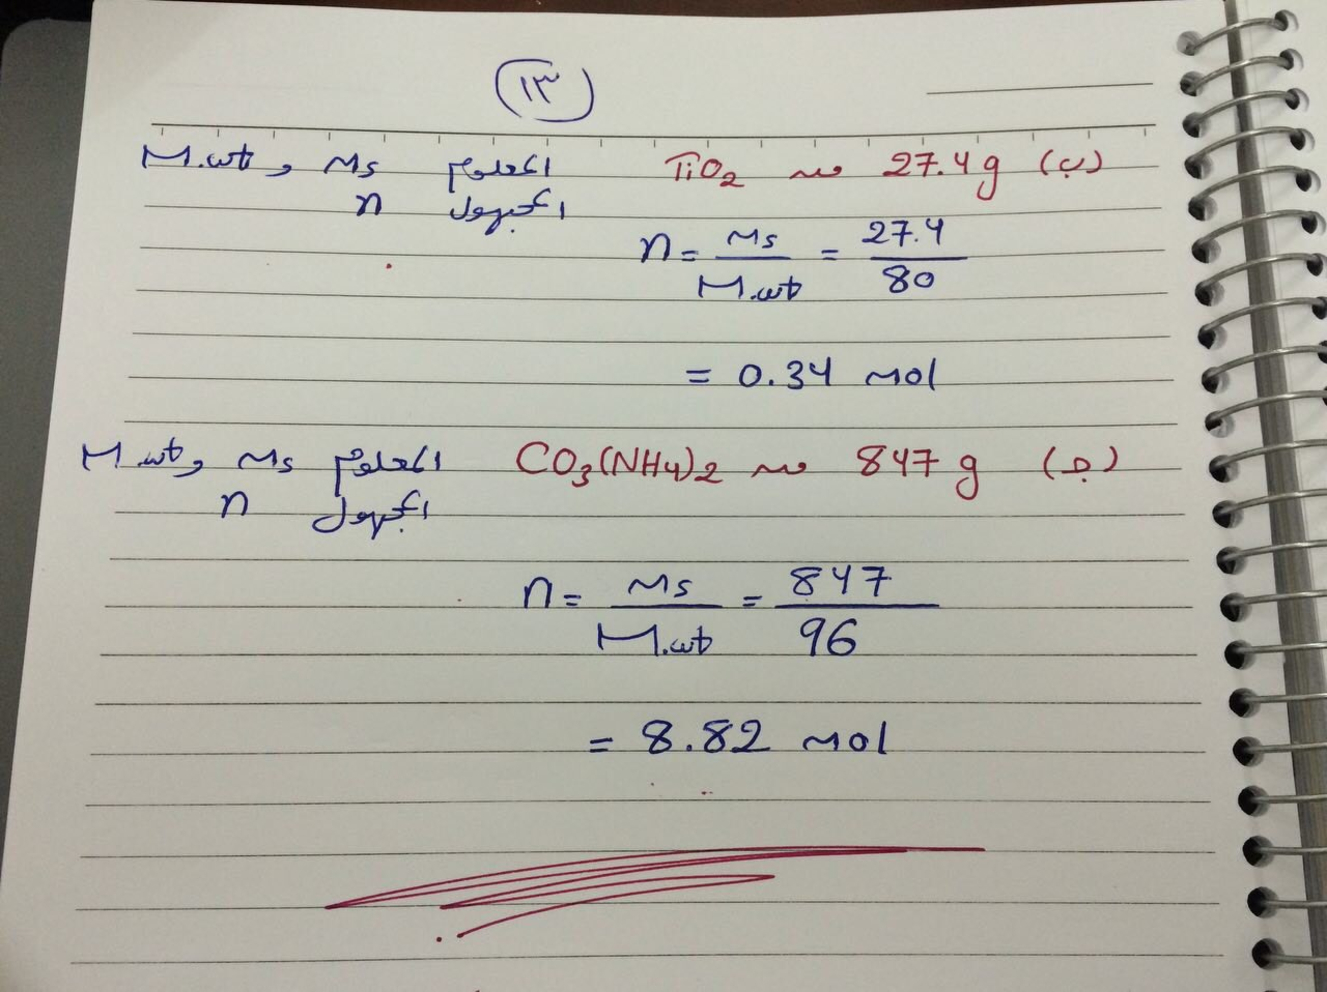 (١٣)
(ب) 27.4 g من TiO2 المعلوم Ms و M.wt
المجهول n
n = Ms / M.wt = 27.4 / 80
= 0.34 mol
(جـ) 847 g من CO3(NH4)2 المعلوم Ms و M.wt
المجهول n
n = Ms / M.wt = 847 / 96
= 8.82 mol